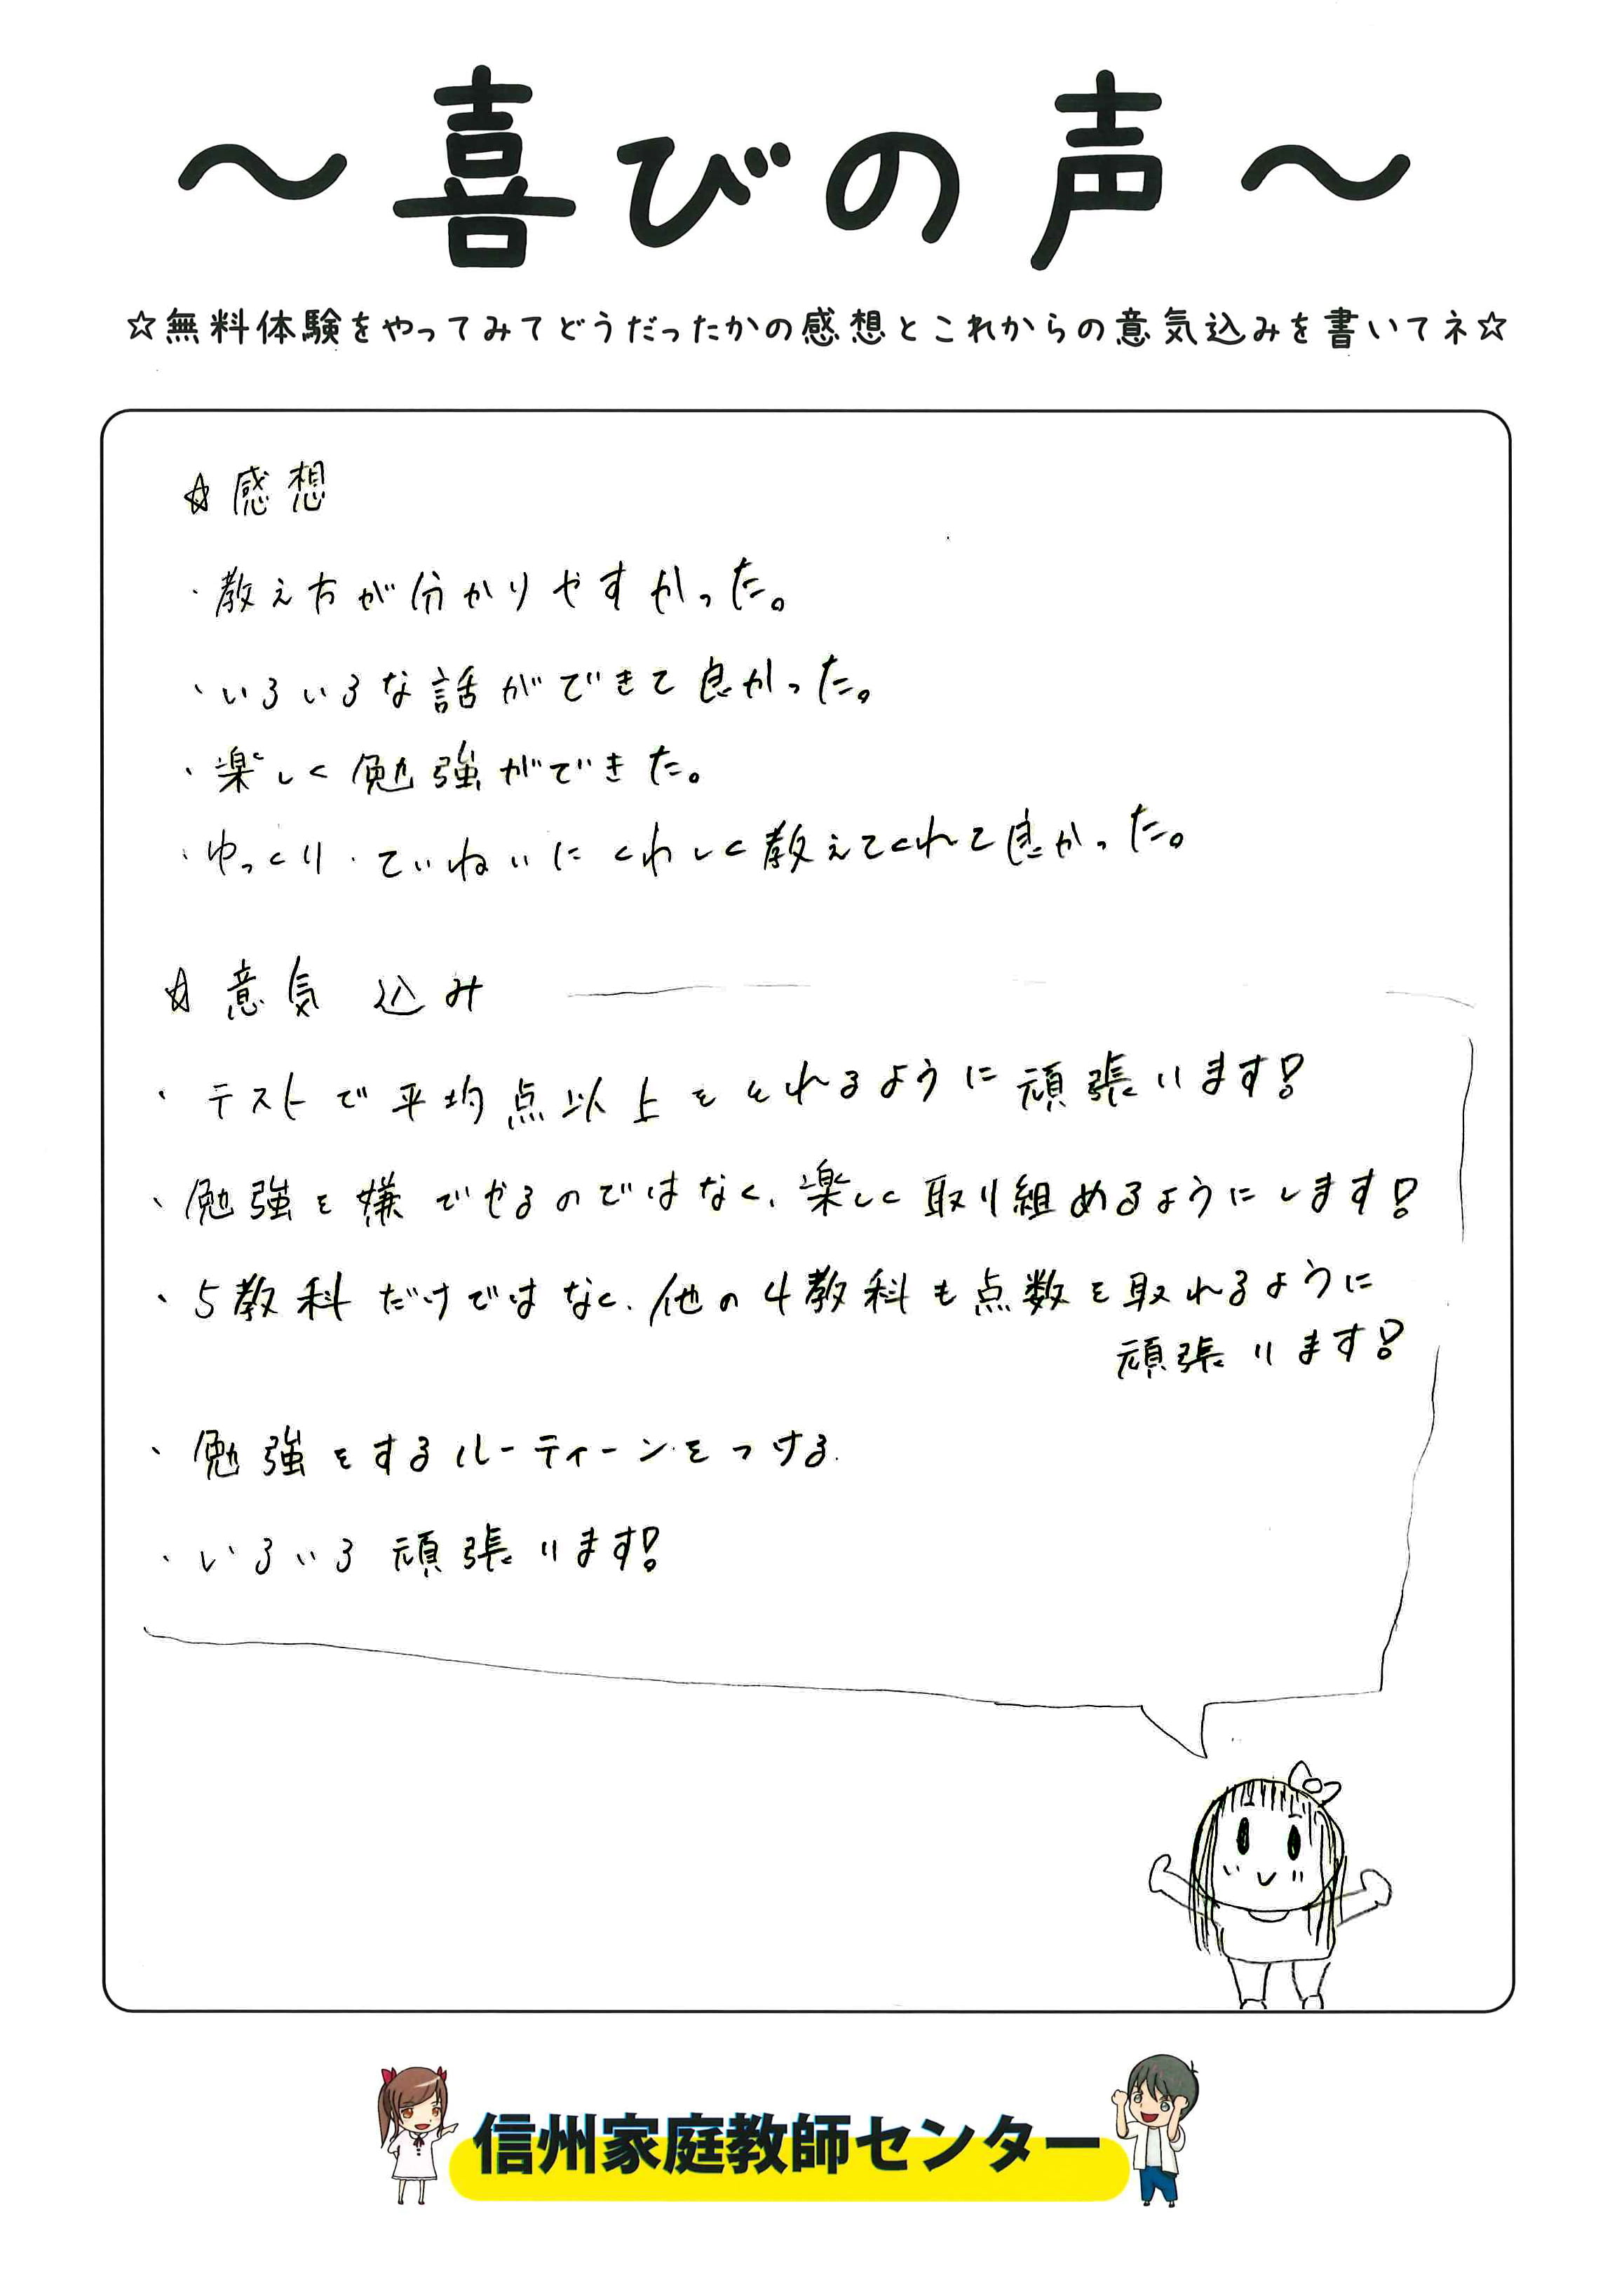 ～喜びの声～
☆無料体験をやってみてどうだったかの感想とこれからの意気込みを書いてネ☆
☆感想
・教え方が分かりやすかった。
・いろいろな話ができて良かった。
・楽しく勉強ができた。
・ゆっくり・ていねいにくわしく教えてくれて良かった。
☆意気込み
・テストで平均点以上をとれるように頑張ります!
・勉強を嫌でやるのではなく、楽しく取り組めるようにします!
・5教科だけではなく、他の4教科も点数を取れるように
頑張ります!
・勉強をするルーティーンをつける.
・いろいろ頑張ります!
信州家庭教師センター